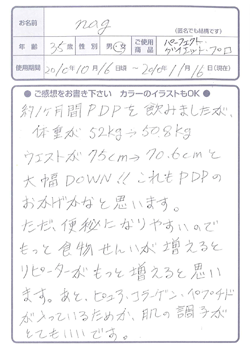 お名前 nag (匿名でも結構です)
年齢 35歳 性別 男・女 ご使用商品 パーフェクト・ダイエット・プロ
使用期間 2010年10月16日頃～2010年11月16日(現在)
●ご感想をお書き下さい カラーのイラストもOK●
約1ヶ月間PDPを飲みましたが、
体重が52kg→50.8kg
ウエストが75cm→70.6cmと
大幅DOWN!!これもPDPの
おかげかなと思います。
ただ、便秘になりやすいので
もっと食物せんいが増えると
リピーターがもっと増えると思い
ます。あと、ピュアコラーゲン・ペプチドが
入っているためか、肌の調子が
とてもいいです。